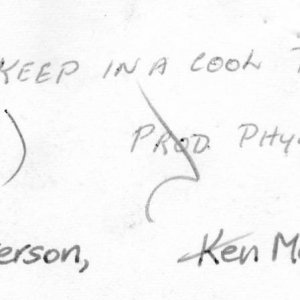 KEEP IN A COOL
PROD PHY
erson, Ken M